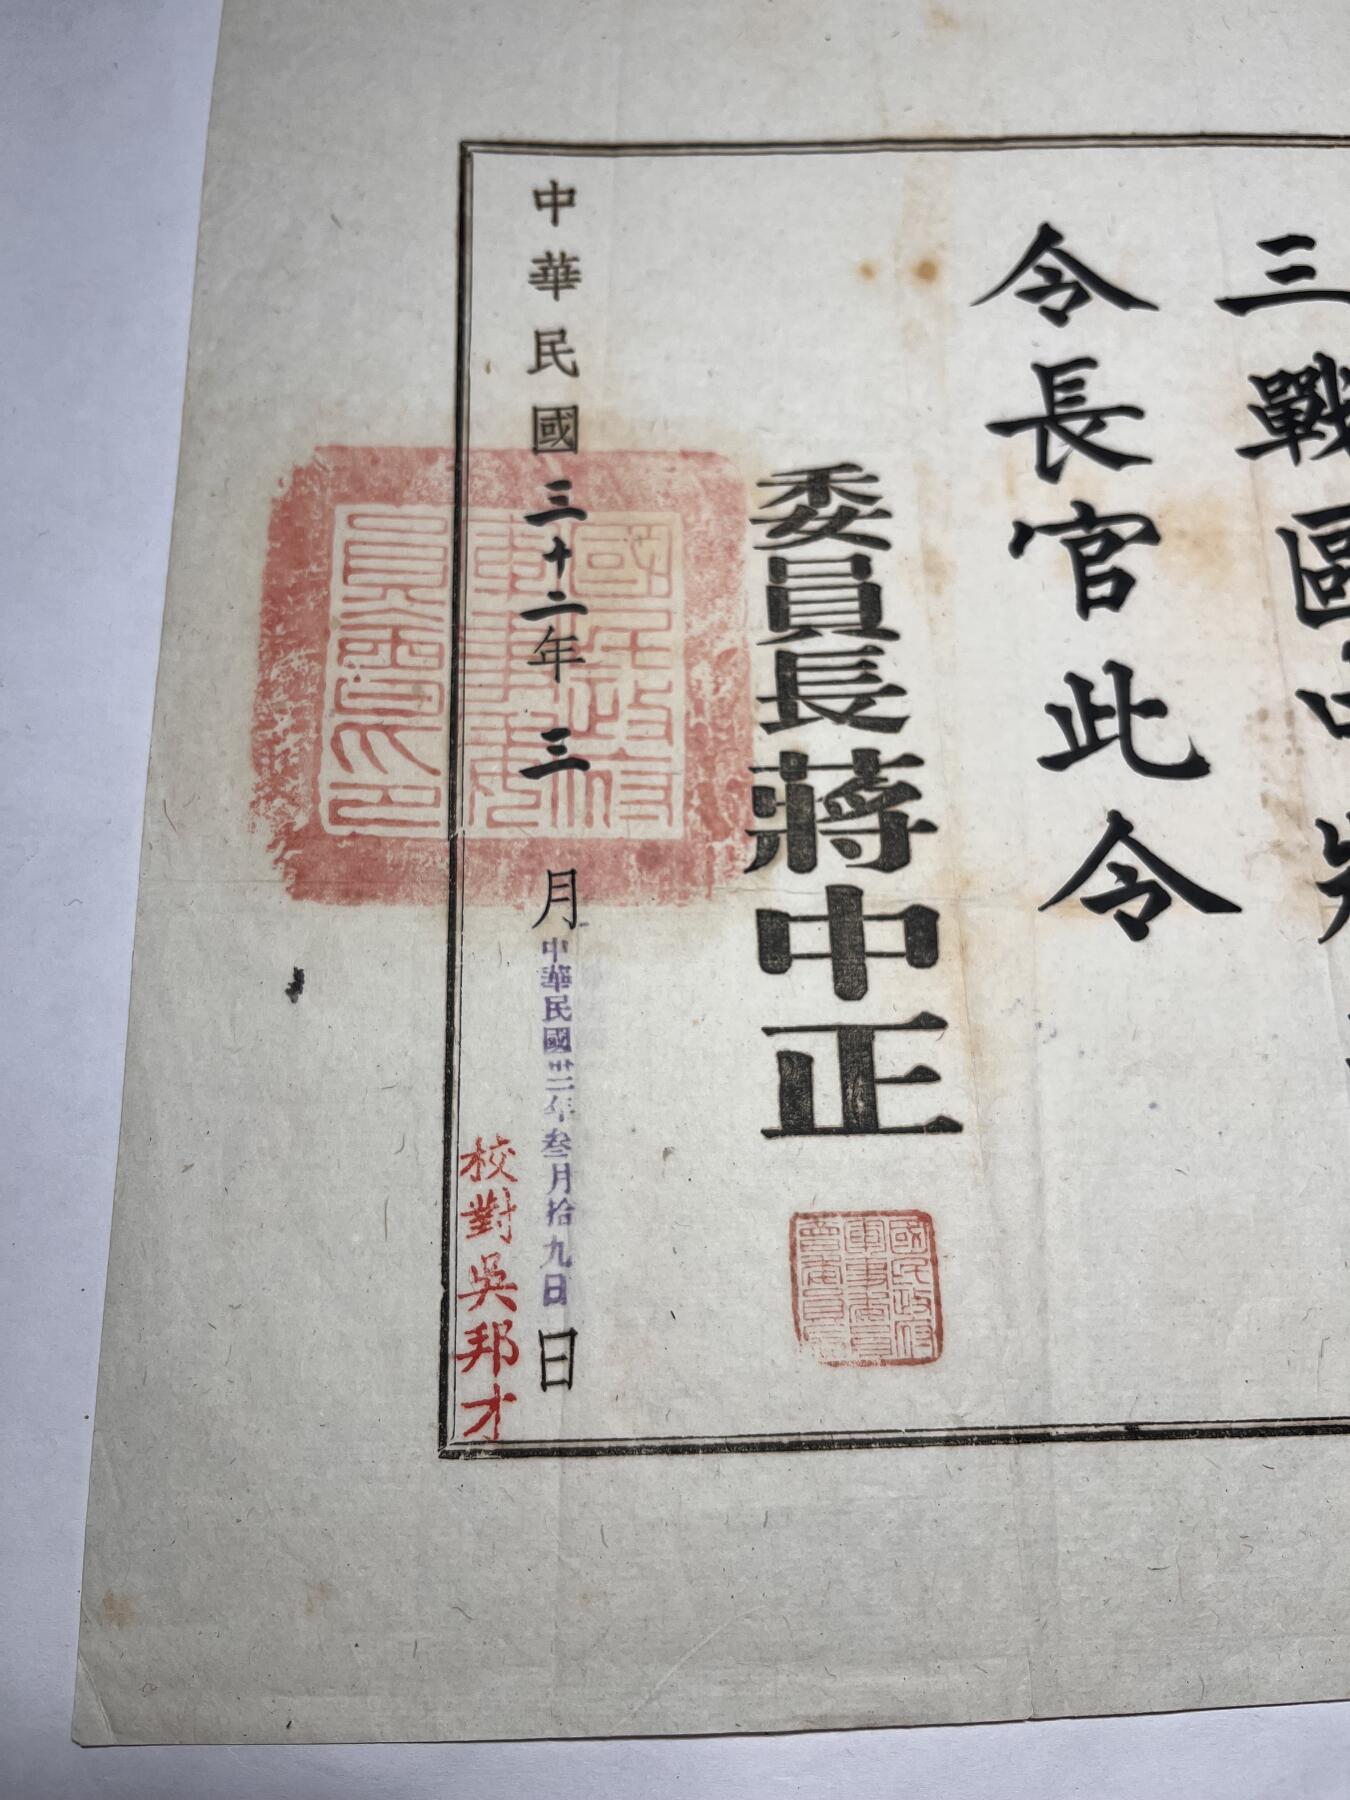 三戰區中
令長官此令
委員長蔣中正
國民政府
軍事委員
會委員長
中華民國三十二年三月日
中華民國卅二年叁月拾九日
國民政府
軍事委
員會之印
校對吳邦才